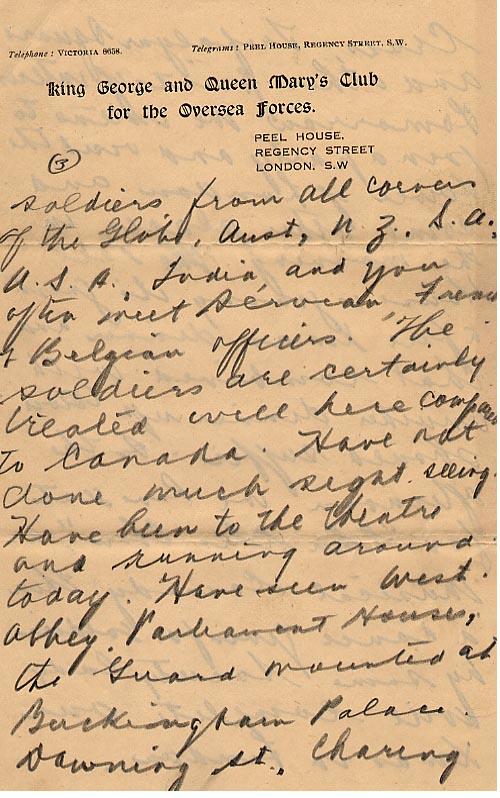 Telephone: VICTORIA 8658. Telegrams: PEEL HOUSE, REGENCY STREET, S.W.
King George and Queen Mary's Club
for the Oversea Forces.
PEEL HOUSE,
REGENCY STREET
LONDON, S.W
(3)
soldiers from all corners
of the Globe, Aust, N.Z., S.A.,
U.S.A. India and you
often meet Servean French
& Belgian officers. The
soldiers are certainly
treated well here compared
to Canada. Have not
done much sight seeing.
Have been to the theatre
and running around
today. Have seen West.
Abbey, Parliament Houses,
the Guard mounted at
Buckingham Palace.
Downing st., Charing